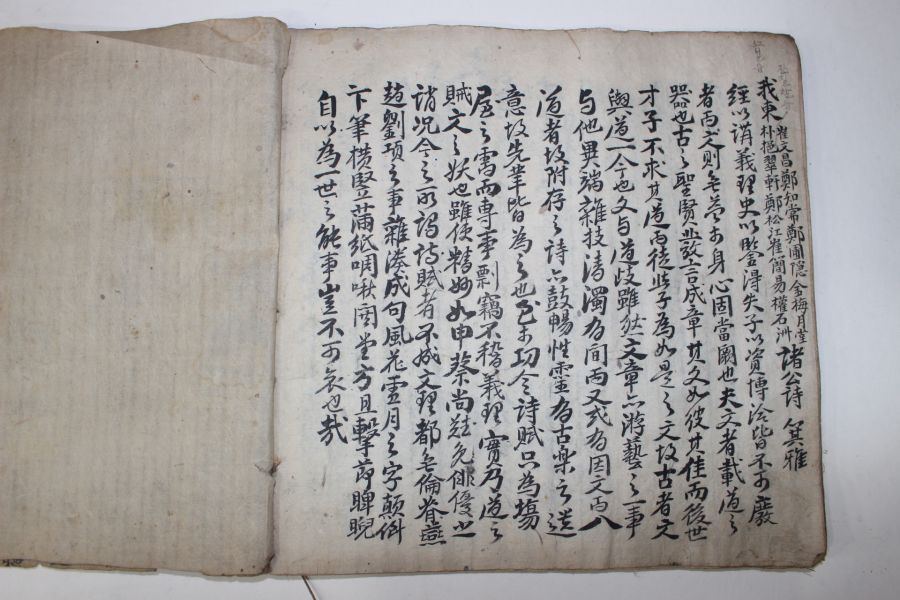 我東崔文昌鄭知常鄭圃隱金梅月堂朴挹翠軒鄭松江崔簡易權石洲諸公詩 箕雅
經以講義理史以鑒得失子以資博洽皆不可廢
者而文則無益於身心固當闕也夫文者載道之
器也古之聖賢發言成章其文如彼其佳而後世
才子不求其道而徒些子爲如是之文故古者文
與道一今也文與道歧雖然文章亦游藝之一事
与他異端雜技清濁有間而又或有因文而入
道者故附存之詩亦鼓暢性靈有古樂之遺
意故先輩皆為之也至於功令詩賦只為場
屋之需而專事剽竊不稽義理實乃道之
賊文之妖也雖使精妙如申蔡尚難免俳優之
誚況今之所謂詩賦者不成文理都無倫脊燕
趙劉項之事雜湊成句風花雪月之字顛倒
下筆橫豎滿紙啁啾閧堂方且擊節睥睨
自以為一世之能事豈不可哀也哉